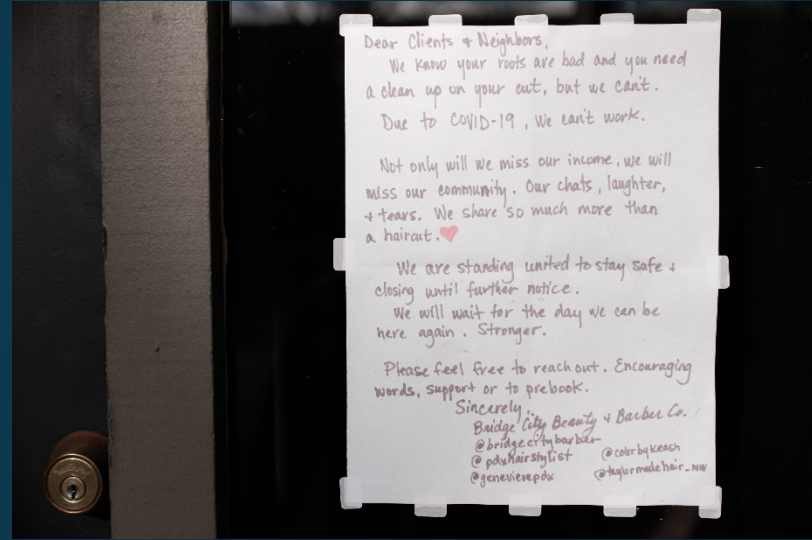 Dear Clients & Neighbors,
We know your roots are bad and you need
a clean up on your cut, but we can't.
Due to COVID-19, We can't work.
Not only will we miss our income, we will
miss our community. Our chats, laughter,
& tears. We share so much more than
a haircut.
We are standing united to stay safe &
closing until further notice.
We will wait for the day we can be
here again. Stronger.
Please feel free to reach out. Encouraging
words, support or to prebook.
Sincerely,
Bridge City Beauty & Barber Co.
@bridgecitybarber
@pdxhairstylist @colorbykeash
@genevievepdx @taylormadehair_nw